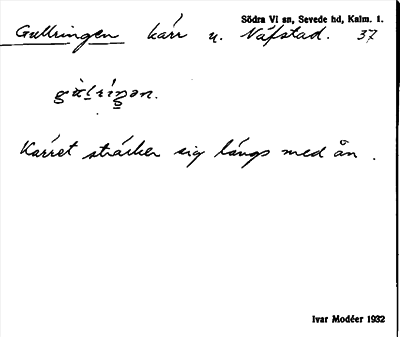 Södra Vi sn, Sevede hd, Kalm. l.
Gullringen kärr u. Näfstad. 37
Kärret sträcker sig längs med ån.
Ivar Modéer 1932